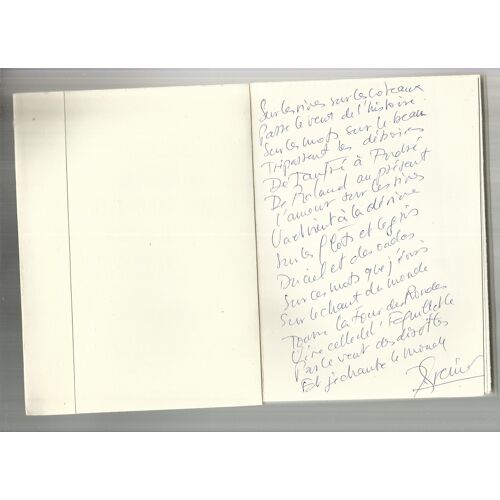 Sur les rives sur les coteaux
Passe le vent de l'histoire
Sur les mots sur le beau
Trépassent les déboires
De à André
De Roland au présent
L'amour sur les rives
Va et vient à la dérive
Sur les flots et le gris
Du ciel et des ondes
Sur ces mots que j'écris
Sur le chant du monde
Tourne la Tour des Rondes
Vire celle de l'
Par le vent des
Et je chante le monde